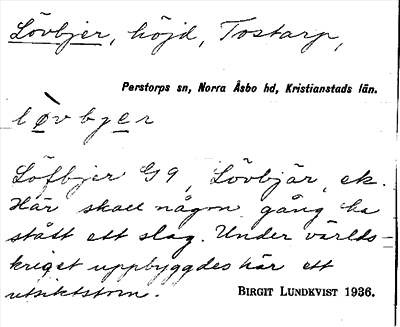 Lövbjer, höjd, Tostarp,
Perstorps sn, Norra Åsbo hd, Kristianstads län.
lø̀vbyer
Löfbjer G9, Lövbjär, ek.
Här skall någon gång ha
stått ett slag. Under världs-
kriget uppbyggdes här ett
utsiktstorn. BIRGIT LUNDKVIST 1936.